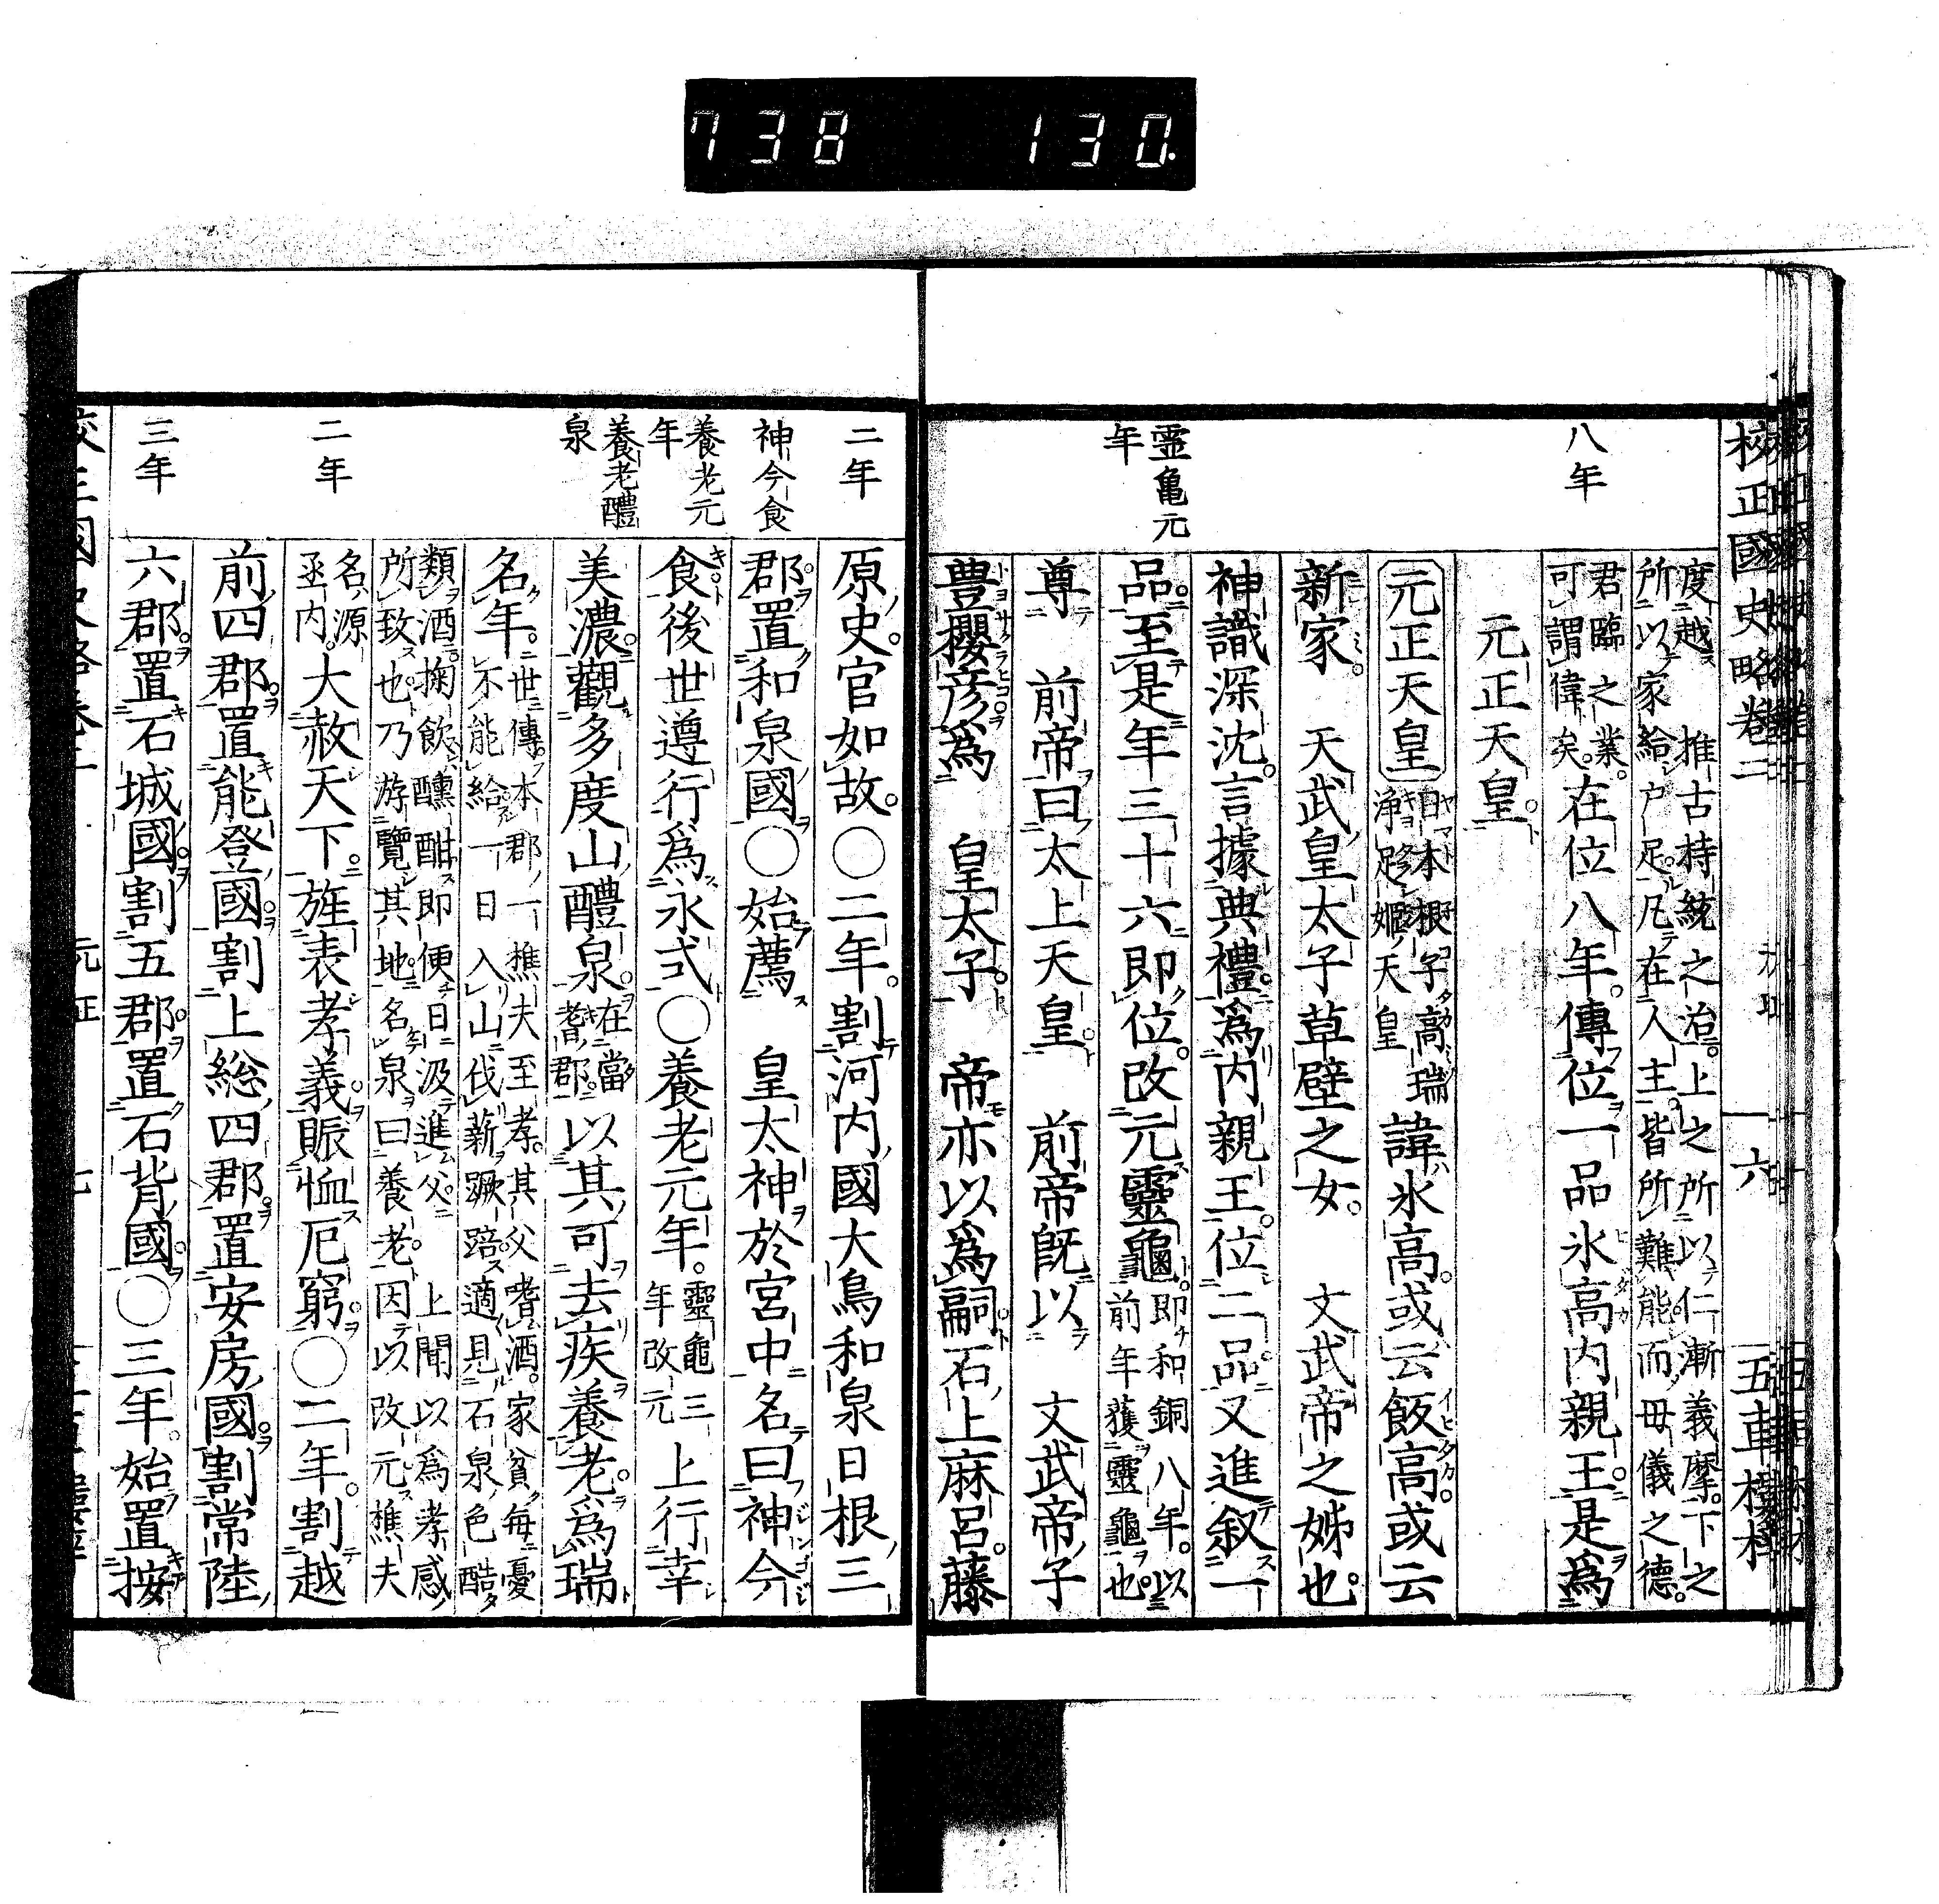 738 130.
校正國史略卷二 六 五車樓梓
度越 推古持統之治上之所以仁漸義摩下之
所以家給戶足凡在人主皆所難能而毋儀之德
八年
君臨之業
可謂偉矣在位八年傳位一品氷高内親王是為
元正天皇
元正天皇 日本根子高瑞
浄足姫天皇 諱氷高或云飯高或云
新家 天武皇太子草壁之女 文武帝之姊也
神識深沈言據典禮為内親王位二品又進叙一
靈亀元年
品至是年三十六即位改元靈龜 即和銅八年以
前年獲靈龜也
尊 前帝曰太上天皇 前帝既以 文武帝子
豊櫻彦為 皇太子 帝亦以為嗣石上麻呂藤
二年
原史官如故○二年割河内國大鳥和泉日根三
神今食
郡置和泉國○始薦 皇太神於宮中名曰神今
養老元年
食後世遵行為永式○養老元年 靈龜三
年改元 上行幸
養老醴泉
美濃觀多度山醴泉 在當
耆郡 以其可去疾養老為瑞
名年 世傳本郡一樵夫至孝其父嗜酒家貧每憂
不能給一日入山伐薪蹶踣適見石泉色酷
類酒掬飲醺酣即便日汲進父 上聞以為孝感
所致也乃游覽其地名泉曰養老因以改元樵夫
二年
名源
丞内 大赦天下旌表孝義賑恤厄窮○二年割越
前四郡置能登國割上総四郡置安房國割常陸
三年
六郡置石城國割五郡置石背國○三年始置按